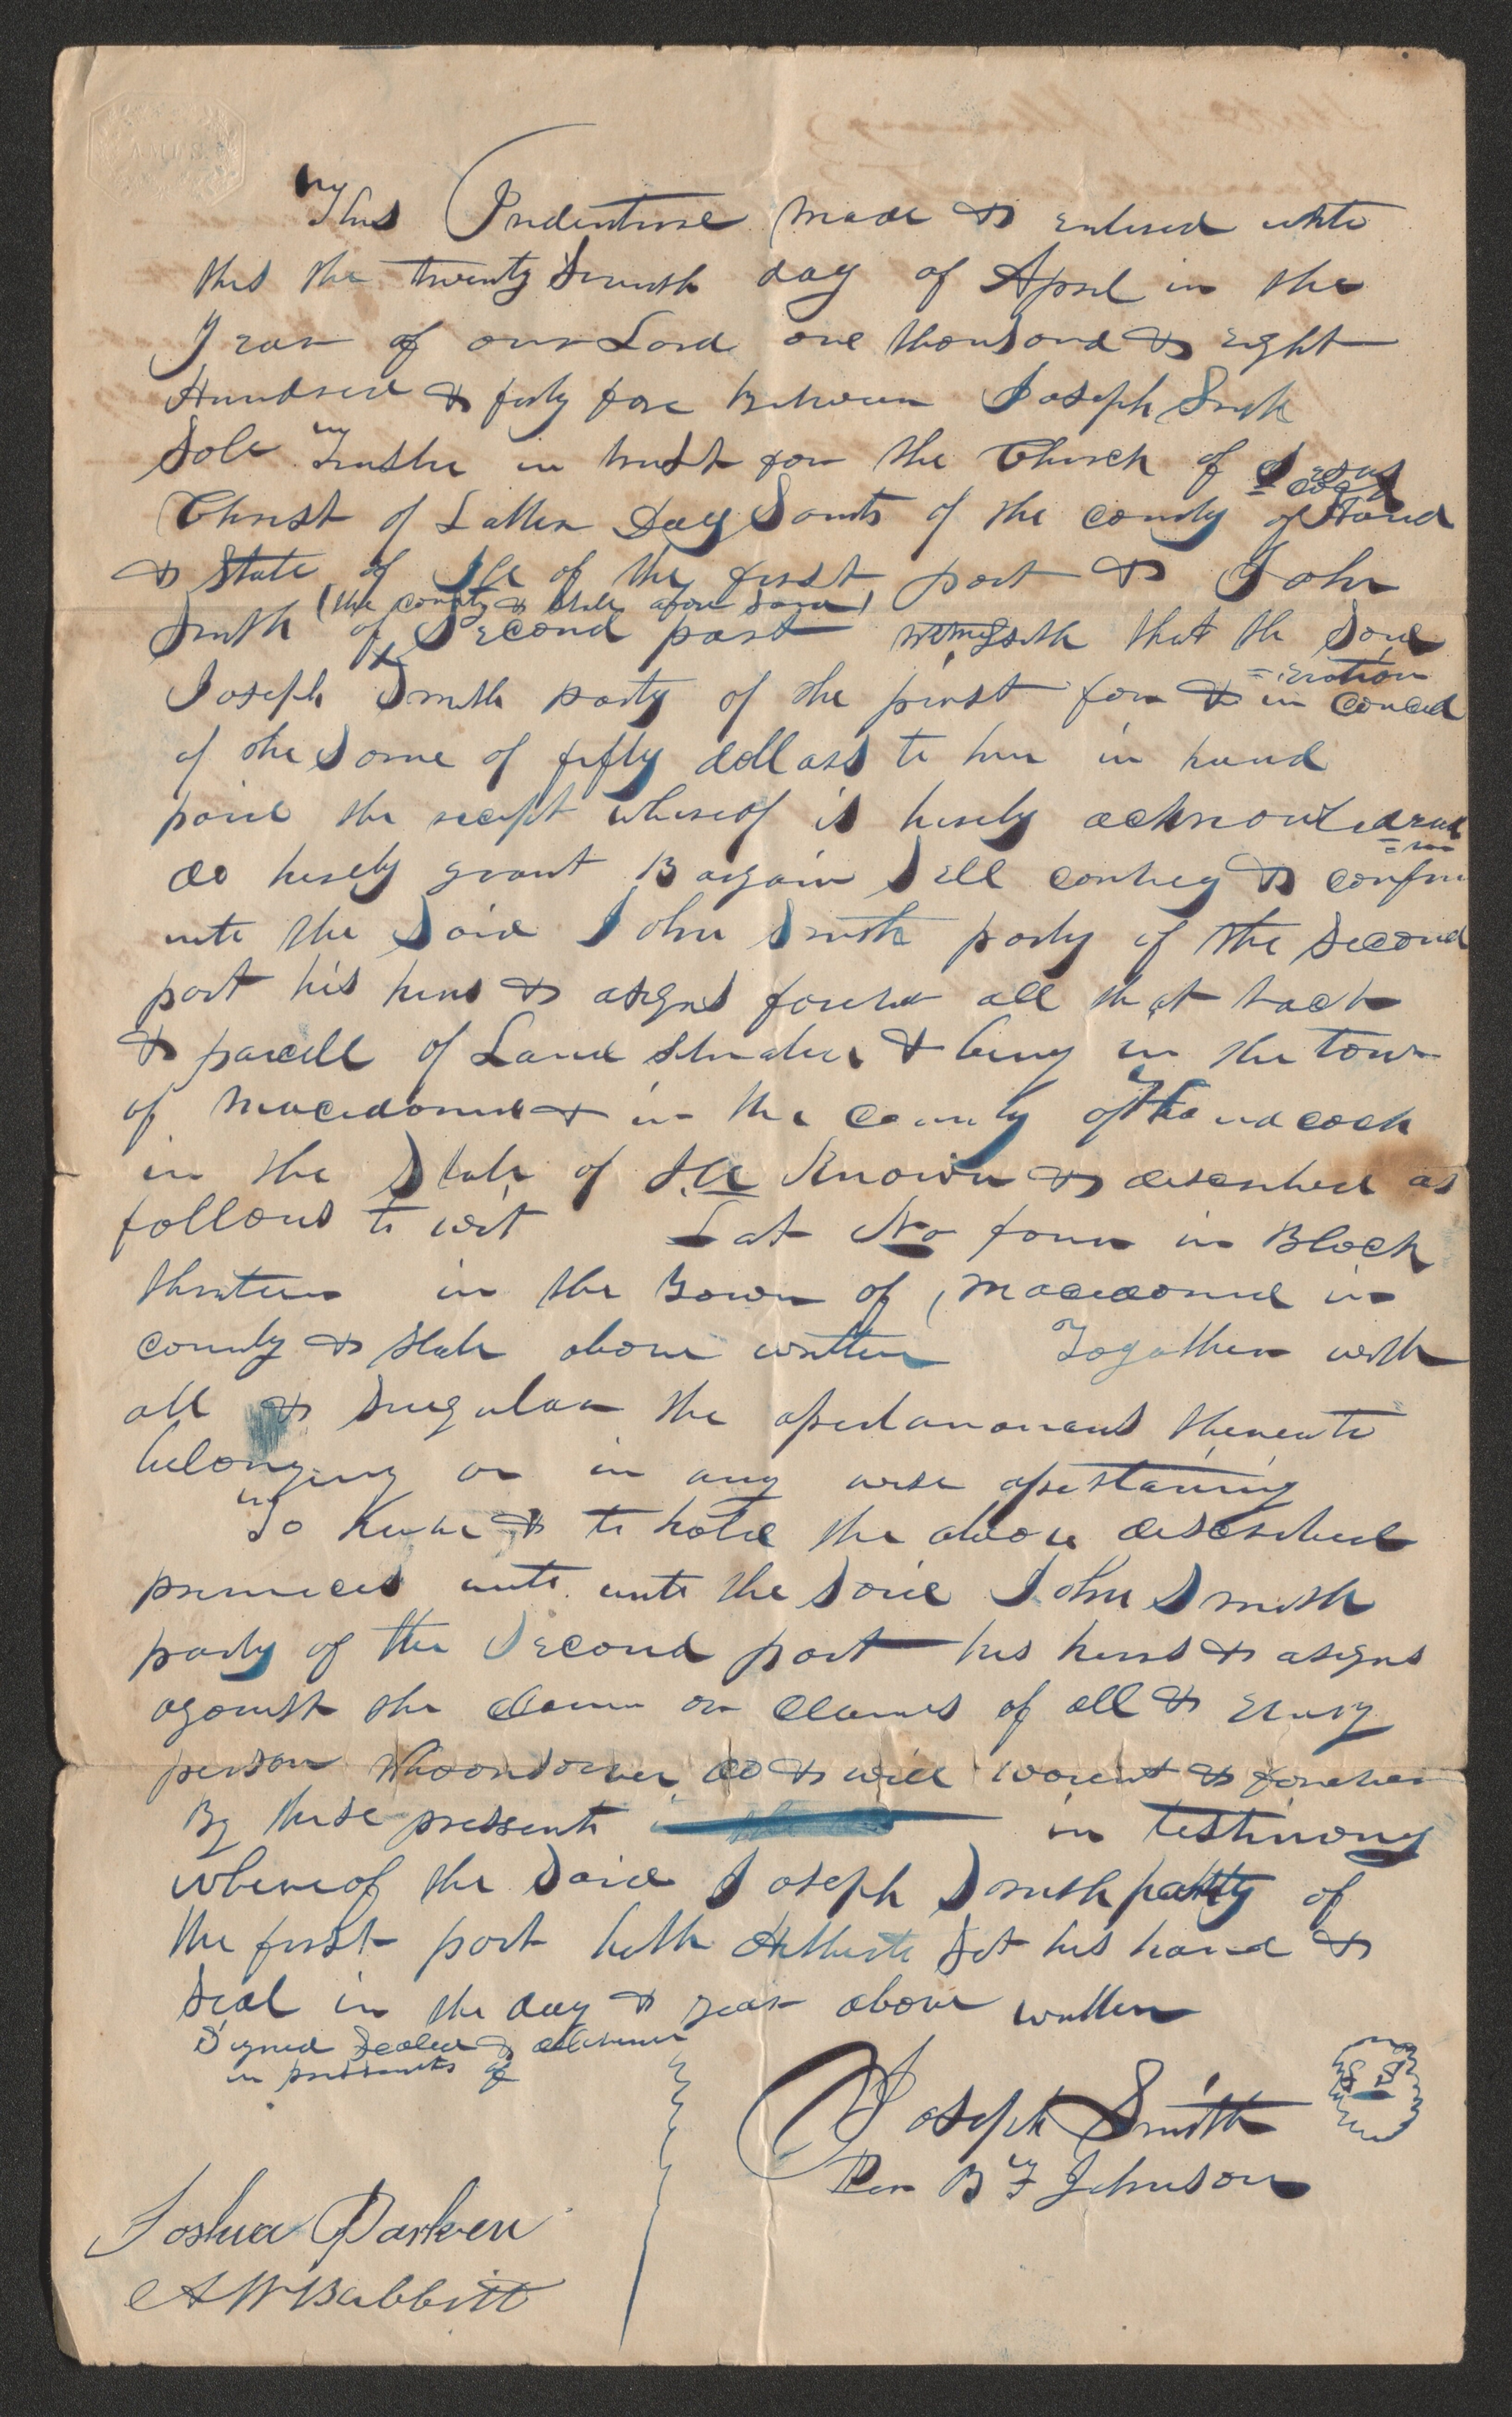 This Indenture made & entered into
this the twenty Seventh day of April in the
Year of our Lord one thousand & eight
Hundred & forty fore between Joseph Smith
Sole Trustee in trust for the Church of Jesus
Christ of Latter Day Saints of the county of Hancd
=cock
& State of Ill of the first part & John
(the county & State afore Said)
Smith of Second part witnesseth that the Said
Joseph Smith party of the first for & in concid
=eration
of the Some of fifty dollars to him in hand
paid the recept whereof is hereby acknowledged
do hereby grant Bargain Sell convey & confirm
unto the Said John Smith party of the Second
part his heirs & asigns forever all that tract
& parcell of Land situated & being in the town
of Macedonia & in the County of Handcock
in the State of Ill Known & described as
follows to wit Lot No four in Block
thirteen in the Town of Macedonia in
county & State above written Togather with
all & Singular the apertanances thereunto
belonging or in any wise apertaining
To have & to hold the above described
premices unto unto the Said John Smith
party of the Second part his heirs & asigns
against the claim or claims of all & every
person whoomsoever do & will warent & forever
By these pressents in testimony
whereof the Said Joseph Smith party of
the first part hath hereunto Set his hand &
Seal in the day & year above written
Signed Sealed & delivered
in pressents of
Joseph Smith
Per B F Johnson
Joshua Parker
A W Babbitt